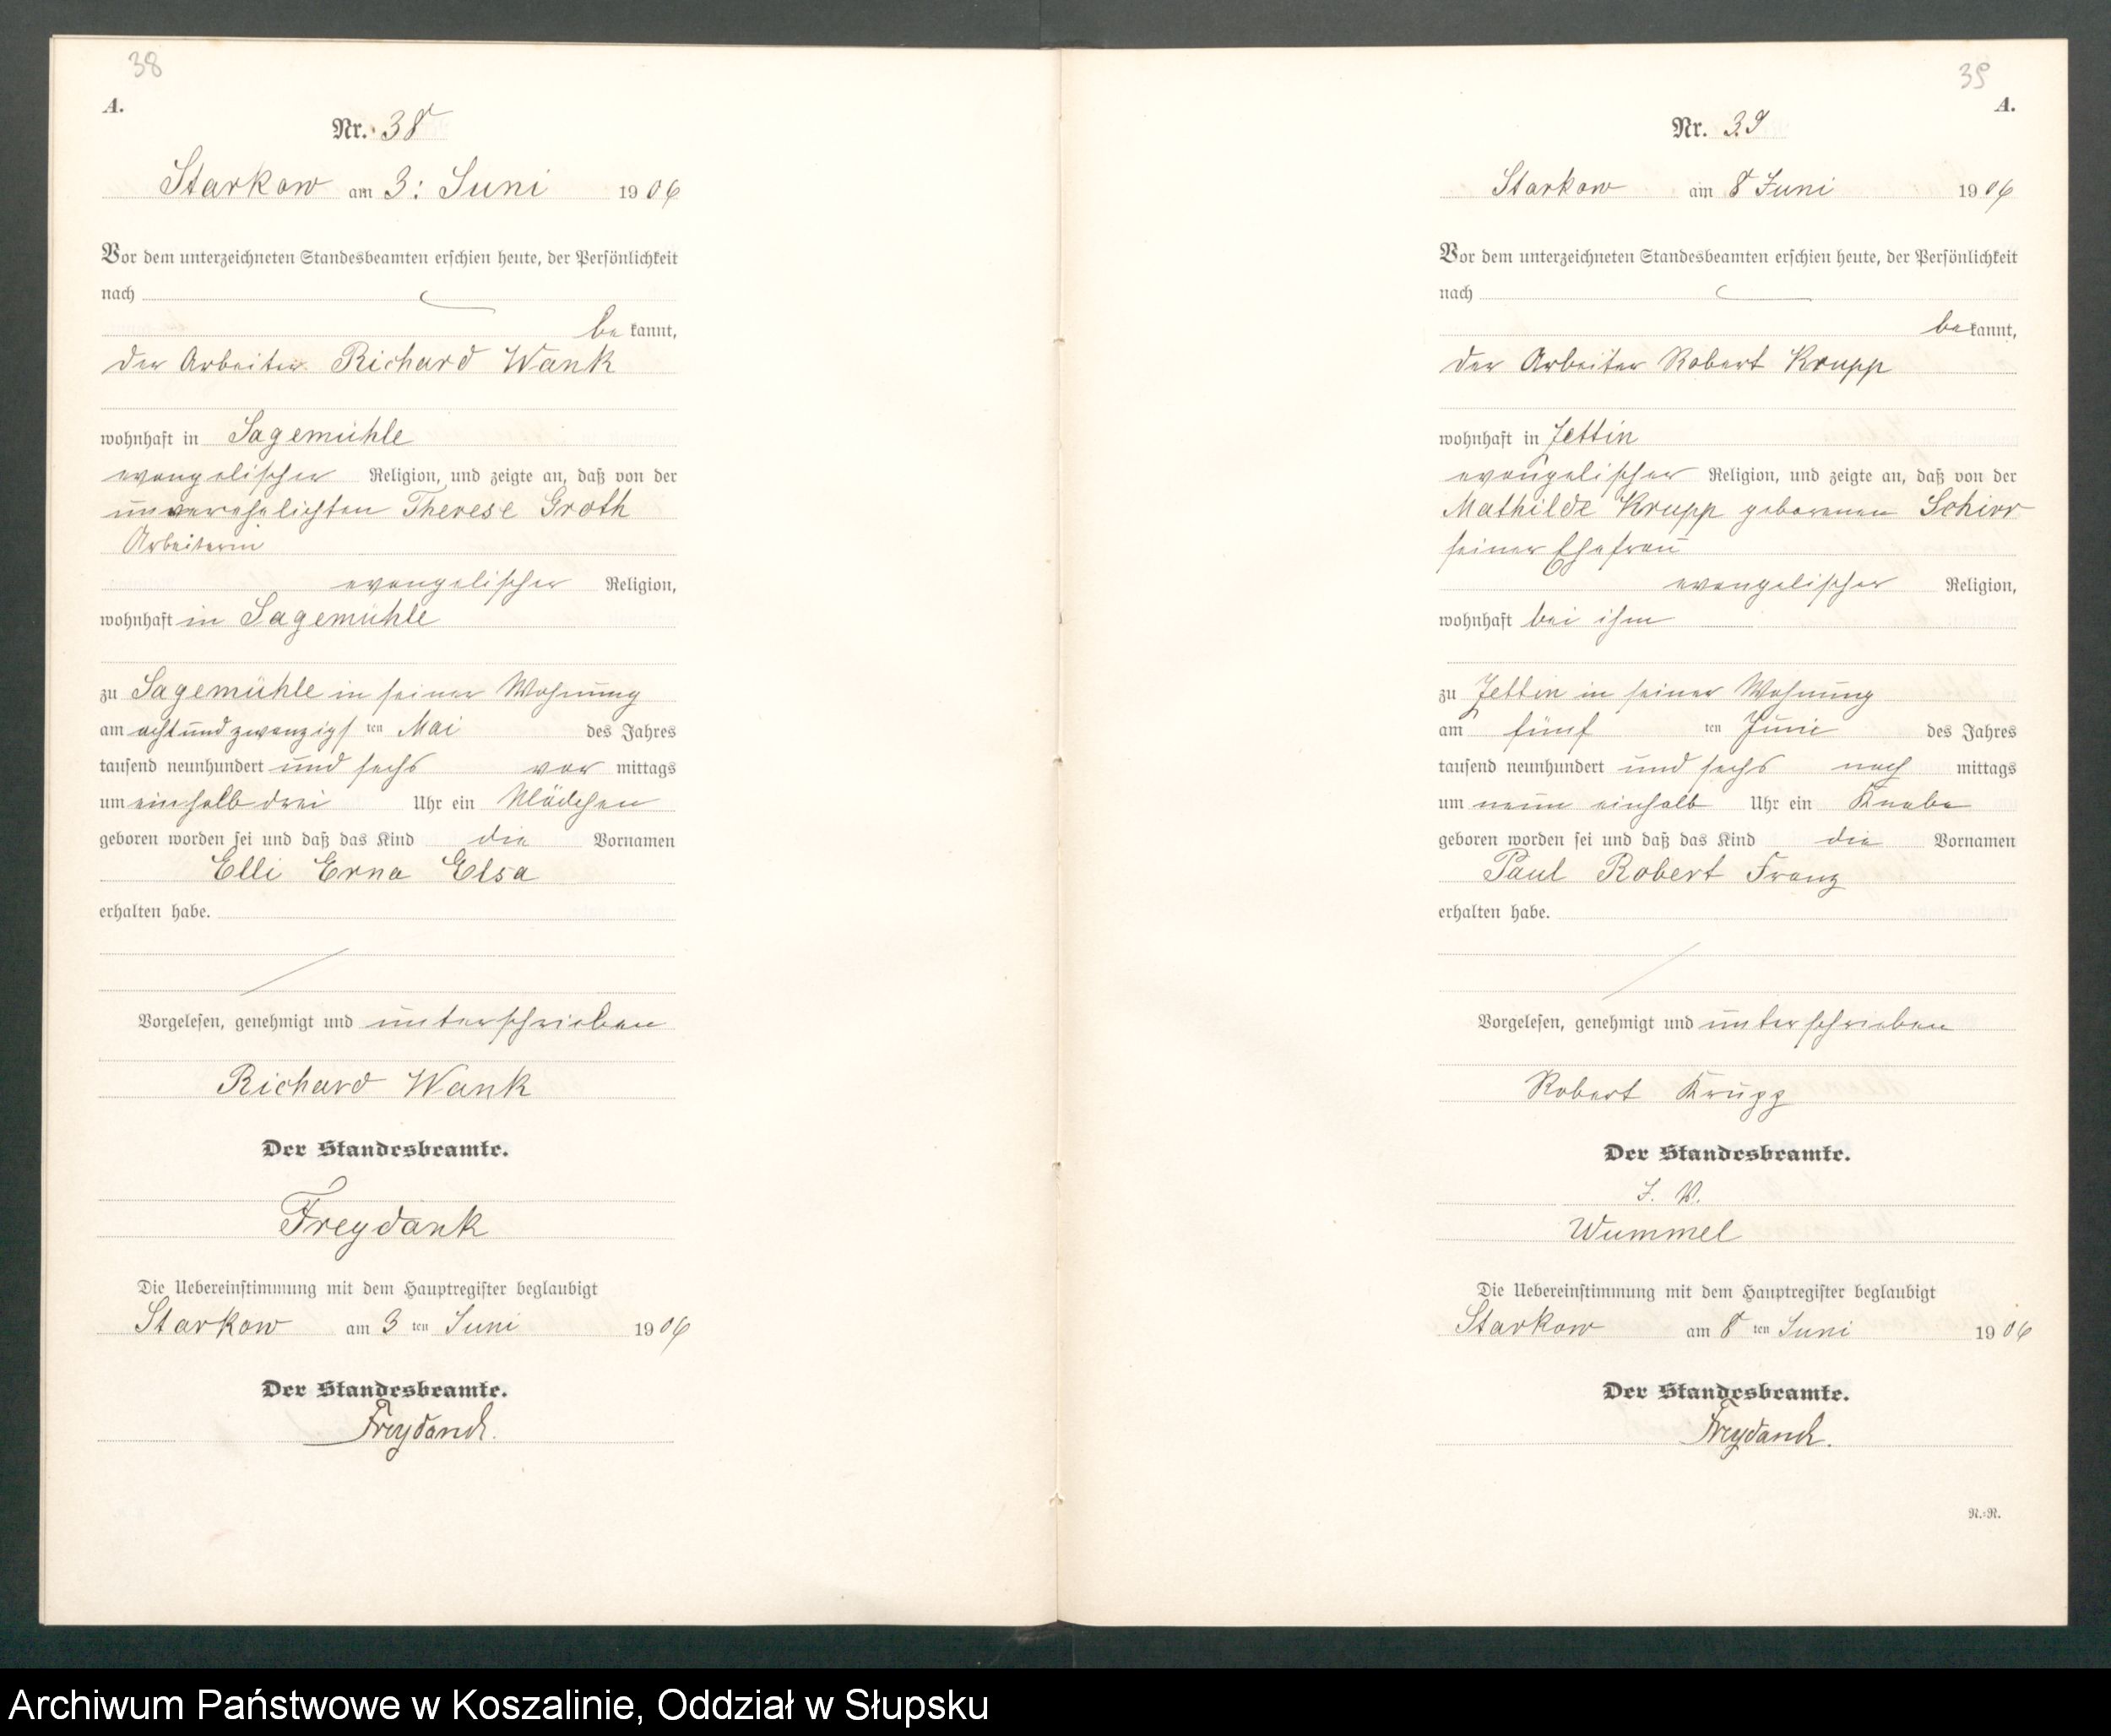 38
A.
Nr. 38
Starkow am 3: Juni 1906
Vor dem unterzeichneten Standesbeamten erschien heute, der Persönlichkeit
nach
be kannt,
der Arbeiter Richard Wank
wohnhaft in Sagemühle
evangelischer Religion, und zeigte an, daß von der
unverehelichten Therese Groth
Arbeiterin
evangelischer Religion,
wohnhaft in Sagemühle
zu Sagemühle in seiner Wohnung
am achtundzwanzigsten Mai des Jahres
tausend neunhundert und sechs vor mittags
um einhalb drei Uhr ein Mädchen
geboren worden sei und daß das Kind die Vornamen
Elli Erna Elsa
erhalten habe.
Vorgelesen, genehmigt und unterschrieben
Richard Wank
Der Standesbeamte.
Freydank
Die Uebereinstimmung mit dem Hauptregister beglaubigt
Starkow am 3 ten Juni 1906
Der Standesbeamte.
Freydank.
39
A.
Nr. 39
Starkow am 8 Juni 1906
Vor dem unterzeichneten Standesbeamten erschien heute, der Persönlichkeit
nach
be kannt,
der Arbeiter Robert Krupp
wohnhaft in Jettin
evangelischer Religion, und zeigte an, daß von der
Mathilde Krupp geborenen Schirr
seiner Ehefrau
evangelischer Religion,
wohnhaft bei ihm
zu Jettin in seiner Wohnung
am fünf ten Juni des Jahres
tausend neunhundert und sechs nach mittags
um neun einhalb Uhr ein Knabe
geboren worden sei und daß das Kind die Vornamen
Paul Robert Franz
erhalten habe.
Vorgelesen, genehmigt und unterschrieben
Robert Krupp
Der Standesbeamte.
J. V.
Wummel
Die Uebereinstimmung mit dem Hauptregister beglaubigt
Starkow am 8 ten Juni 1906
Der Standesbeamte.
Freydank.
N.=R.
Archiwum Państwowe w Koszalinie, Oddział w Słupsku